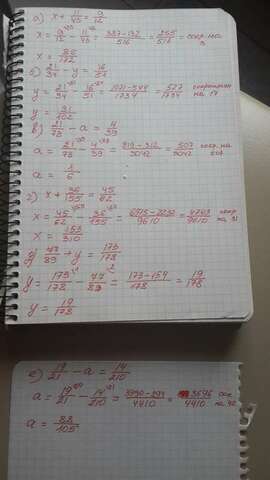 а) x + 11/43 = 9/12
x = 9/12 - 11/43 = 387-132/516 = 255/516 = сокр. на 3
x = 85/172
б) 21/34 - y = 16/51
y = 21/34 - 16/51 = 1071-544/1734 = 527/1734 сократим на 17
y = 31/102
в) 21/78 - a = 4/39
a = 21/78 - 4/39 = 819-312/3042 = 507/3042 сокр на 507
a = 1/6
г) x + 36/155 = 45/62
x = 45/62 - 36/155 = 6975-2232/9610 = 4743/9610 сокр на 31
x = 153/310
д) 77/89 + y = 173/178
y = 173/178 - 77/89 = 173-154/178 = 19/178
y = 19/178
е) 19/21 - a = 14/210
a = 19/21 - 14/210 = 3990-294/4410 = 3696/4410 сок на 42
a = 88/105